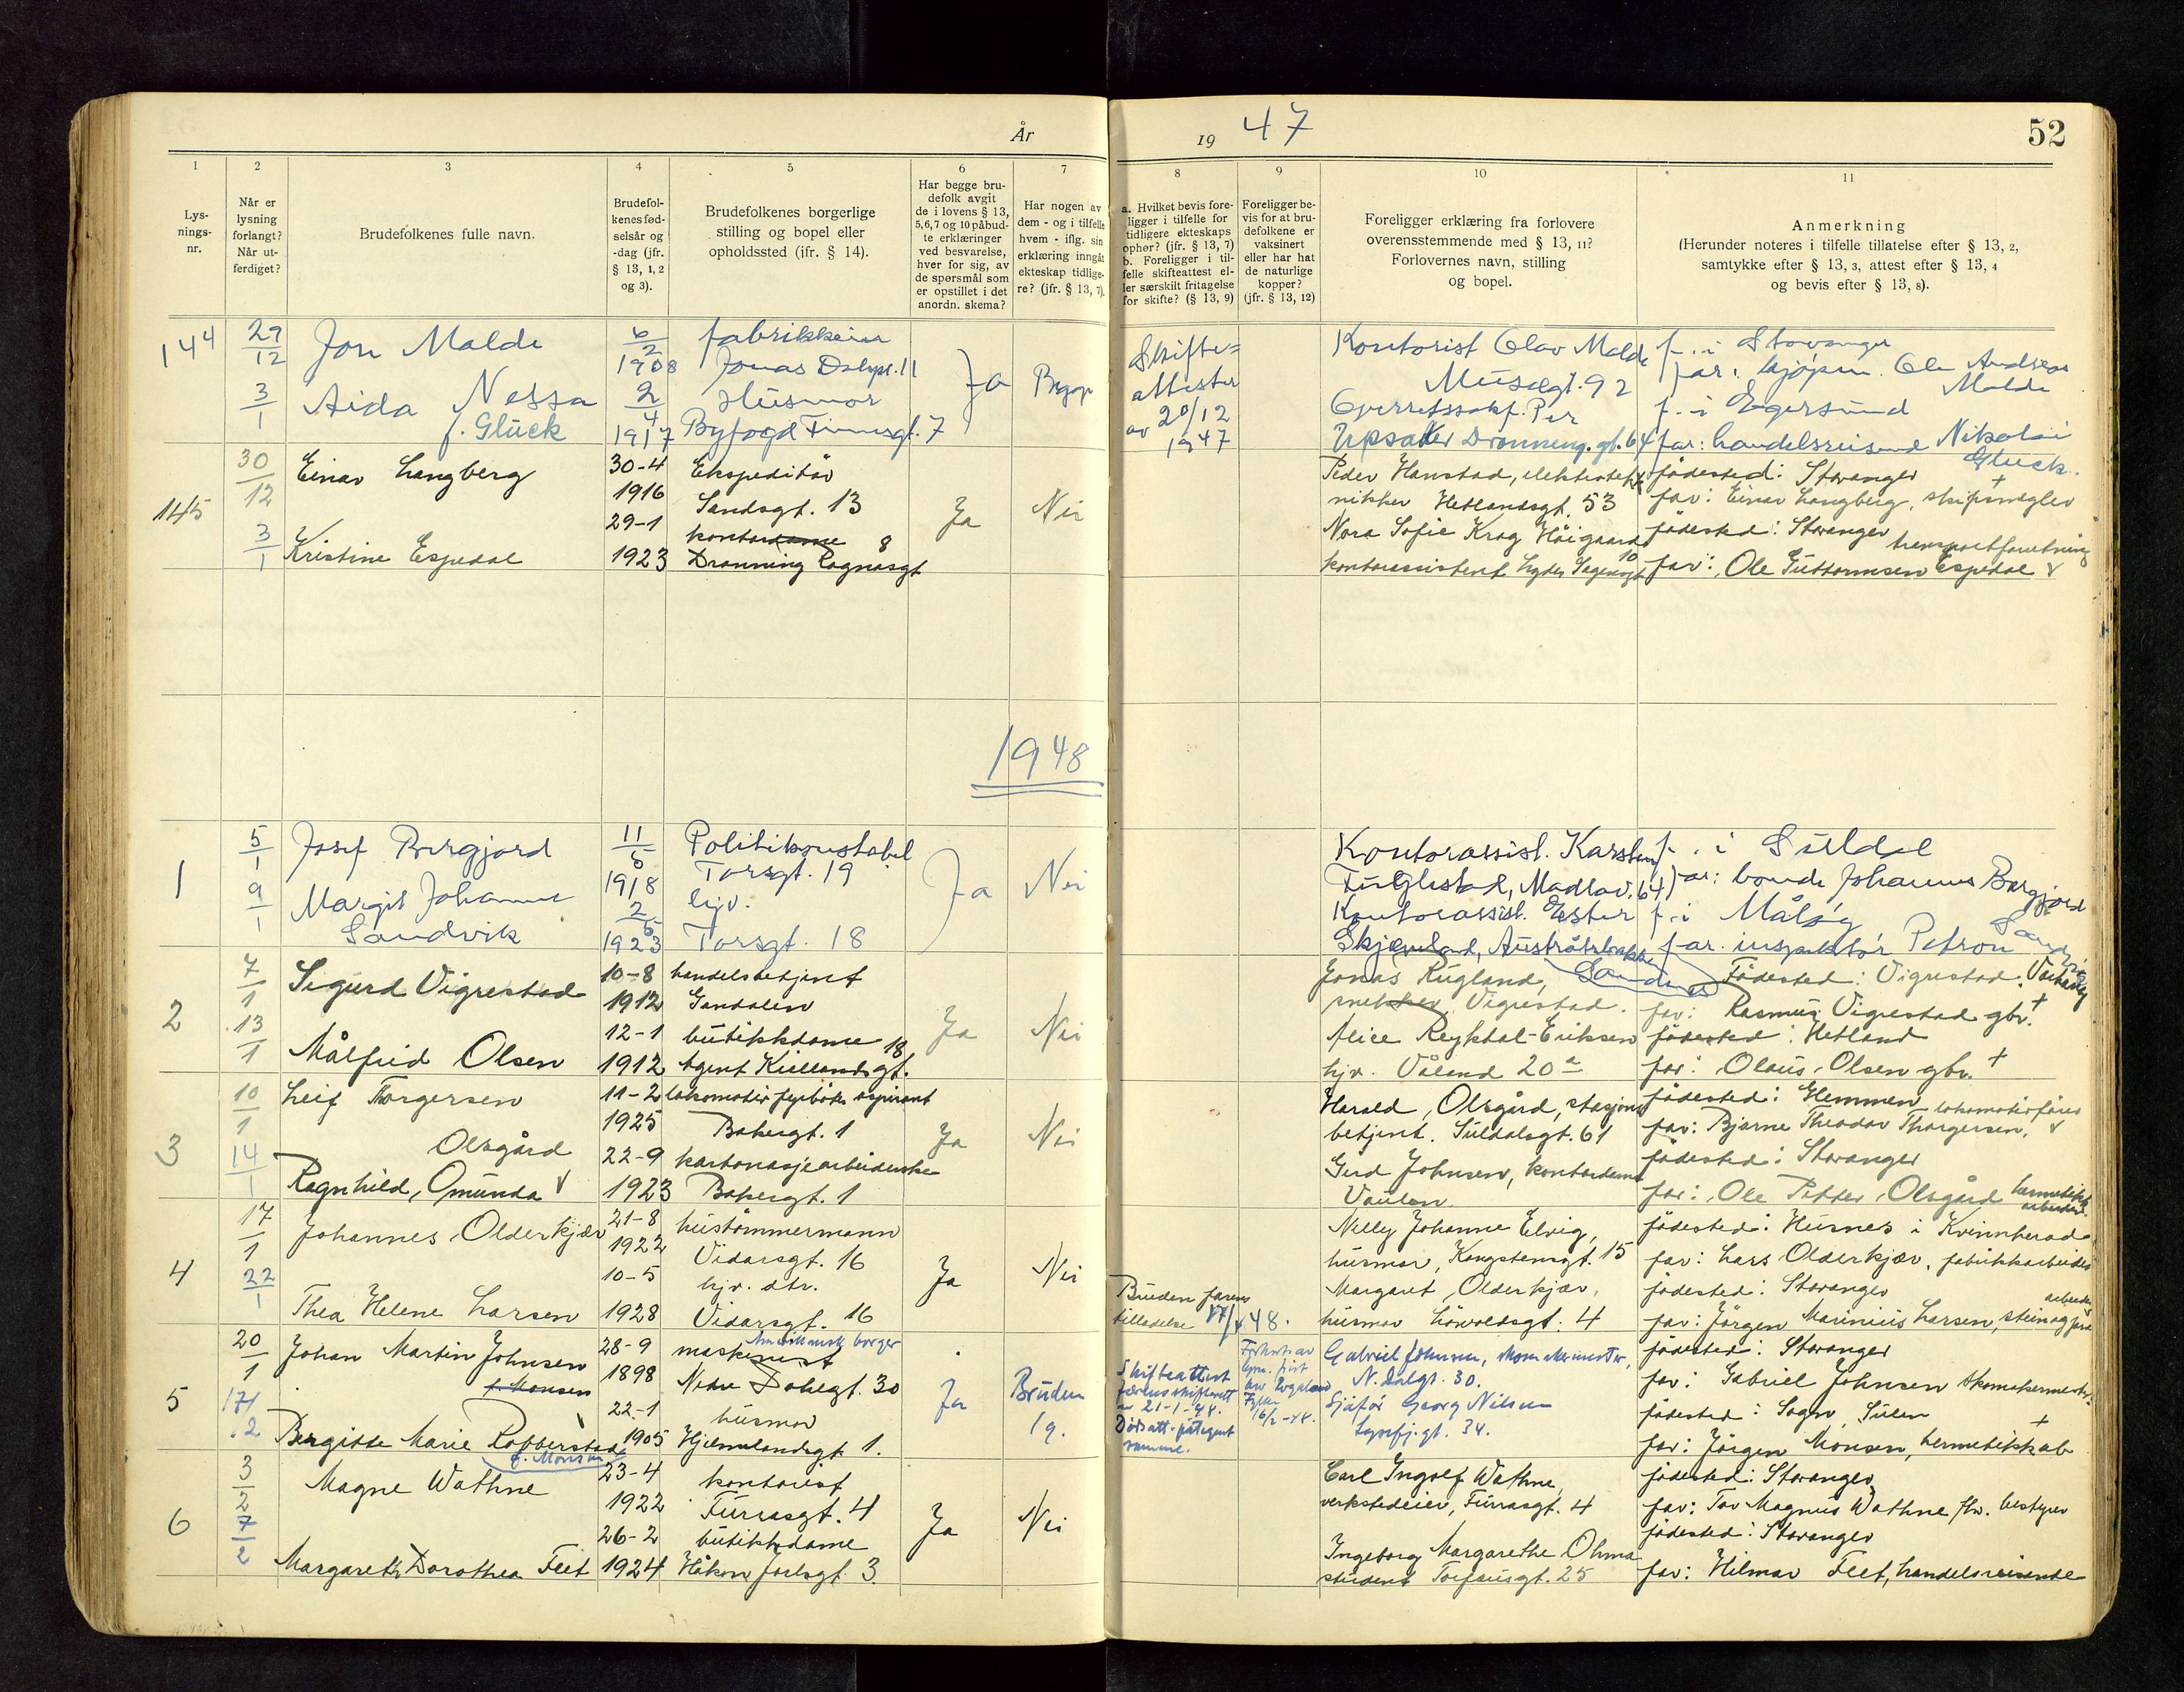 År
19 47
52
1
2
3
4
5
6
7
8
9
10
11
Lys-
nings-
nr.
Når er
lysning
forlangt?
Når ut-
ferdiget?
Brudefolkenes fulle navn.
Brudefol-
kenes fød-
selsår og
-dag (jfr.
§ 13, 1, 2
og 3).
Brudefolkenes borgerlige
stilling og bopel eller
opholdssted (jfr. § 14).
Har begge bru-
defolk avgit
de i lovens § 13,
5,6,7 og 10 påbud-
te erklæringer
ved besvarelse,
hver for sig, av
de spørsmål som
er opstillet i det
anordn. skema?
Har nogen av
dem - og i tilfelle
hvem - iflg. sin
erklæring inngåt
ekteskap tidlige-
re? (jfr. § 13, 7).
a. Hvilket bevis fore-
ligger i tilfelle for
tidligere ekteskaps
ophør? (jfr. § 13, 7)
b. Foreligger i til-
felle skifteattest el-
ler særskilt fritagelse
for skifte? (§ 13, 9)
Foreligger be-
vis for at bru-
defolkene er
vaksinert
eller har hat
de naturlige
kopper?
(jfr. § 13, 12)
Foreligger erklæring fra forlovere
overensstemmende med § 13, 11?
Forlovernes navn, stilling
og bopel.
Anmerkning
(Herunder noteres i tilfelle tillatelse efter § 13, 2,
samtykke efter § 13, 3, attest efter § 13, 4
og bevis efter § 13, 8).
144
29/12
3/1
Jon Malde
Aida Nessa
f. Glück
6/2
1908
2/4
1917
fabrikkeier
Jonas Dalspl. 11
Husmor
Byfogd Finnesgt. 7
Ja
Begge
Skifte=
attester
av 20/12
1947
Kontorist Olav Malde
Musegt. 92
Per
Upsaker Dronning.gt. 64
f. i Stavanger
far: kjøpm. Ole Andreas
Malde
f. i Egersund
far: handelsreisend Nikolai
Glück.
145
30/12
3/1
Einar Langberg
Kristine Espedal
30-4
1916
29-1
1923
Ekspeditør
Sandsgt. 13
kontordame 8
Dronning Ragnasgt
Ja
Nei
Peder Hanstad, elektrotek
nikker Hetlandsgt. 53
Nora Sofie Krag Höigaard
kontorassistent Lyder Sagensgt 10
födested: Stavanger
far: Einar Langberg, skipsmegler †
födested: Stavanger
transportforretning
far: Ole Guttormsen Espedal
1948
1
5/1
9/1
Josef Bergjord
Margit Johanne
Sandvik
11/5
1918
2/5
1923
Politikonstabel
Torsgt. 19
hjv.
Torsgt. 18
Ja
Nei
Kontorassist. Karsten
Fuglestad, Madlav. 64
Kontorassist. Ester
Skjæveland, Austråttbakken
Sandnes
f. i Suldal
far: bonde Johannes Bergjord
f. i Måløy
far. inspektør Petron Sandvik
2
7/1
13/1
Sigurd Vigrestad
Målfrid Olsen
10-8
1912
12-1
1912
handelsbetjent
Gandalen
butikkdame 18
Agent Kiellandsgt.
Ja
Nei
Jonas Rugland,
snekker Vigrestad.
Alice Reykdal-Eriksen
hjv. Våland 20a
Födested: Vigrestad. Varhaug
far: Rasmus Vigrestad gbr. †
födested: Hetland
far: Olaus Olsen gbr. †
3
10/1
14/1
Leif Thorgersen
Olsgård
Ragnhild, Omunda
11-2
1925
22-9
1923
lokomotivfyrböter aspirant
Bakergt. 1
kartonasjearbeiderske
Bakergt. 1
Ja
Nei
Harald Olsgård, stasjons
betjent. Suldalsgt. 61
Gerd Johnsen, kontordame
Vaulen
födested: Hemmen
lokomotivförer
far: Bjarne Theodor Thorgersen,
födested: Stavanger
far: Ole Petter Olsgård hermetikk
arbeider.
4
17/1
22/1
Johannes Olderkjær
Thea Helene Larsen
21-8
1922
10-5
1928
hustömmermann
Vidarsgt. 16
hjv. dtr.
Vidarsgt. 16
Ja
Nei
Bruden farens
tilladelse 17/1 48.
Nelly Johanne Elvig,
husmor, Kongstensgt. 15
Margaret Olderkjær,
husmor Haraldsgt. 4
födested: Husnes i Kvinnherad
far: Lars Olderkjær, fabrikkarbeider
födested: Stavanger
arbeider
far: Jörgen Marinius Larsen,
5
20/1
17/2
Johan Martin Johnsen
f. Monsen
Bergitte Marie Robberstad
f. Monsen
28-9
1898
22-1
1905
Amerikansk borger
maskinist
Nedre Dalegt. 30
husmor
Hjelmelandsgt 1.
Ja
Bruden
1 g.
Skifteattest
21-1-48.
samme.
av Rogaland
Fylke
16/2-48.
Gabriel Johnsen, skomakermester,
N. Dalgt. 30.
Sjåför Georg Nilsen
Lysefj.gt. 34.
födested: Stavanger
far: Gabriel Johnsen skomakermester.
födested: Sogn, Sulen
far: Jörgen Monsen, hermetikkarb †
6
3/2
7/2
Magne Wathne
Margareth Dorothea Feet
23-4
1922
26-2
1924
kontorist
Furrasgt. 4
butikkdame
Håkon Jarlsgt. 3.
Ja
Nei
Carl Ingolf Wathne,
verkstedeier, Furrasgt. 4
Ingeborg Margarethe Ohma
student Torfæusgt. 25
födested: Stavanger
far: Tor Magnus Wathne fhv. bestyrer
födested: Stavanger
far: Hilmar Feet, handelsreisende